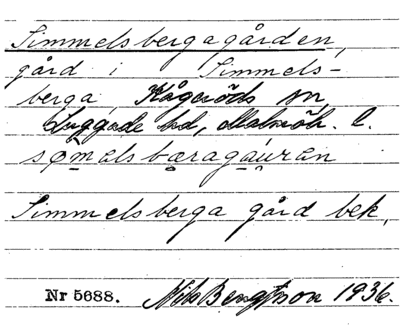 Simmelsbergagården,
gård i Simmels-
berga, Kågeröds sn,
Luggude hd, Malmöh. l.
sømalsbæragáuran
Simmelsberga gård bek.
Nr 5688. Nils Bengtsson 1936.